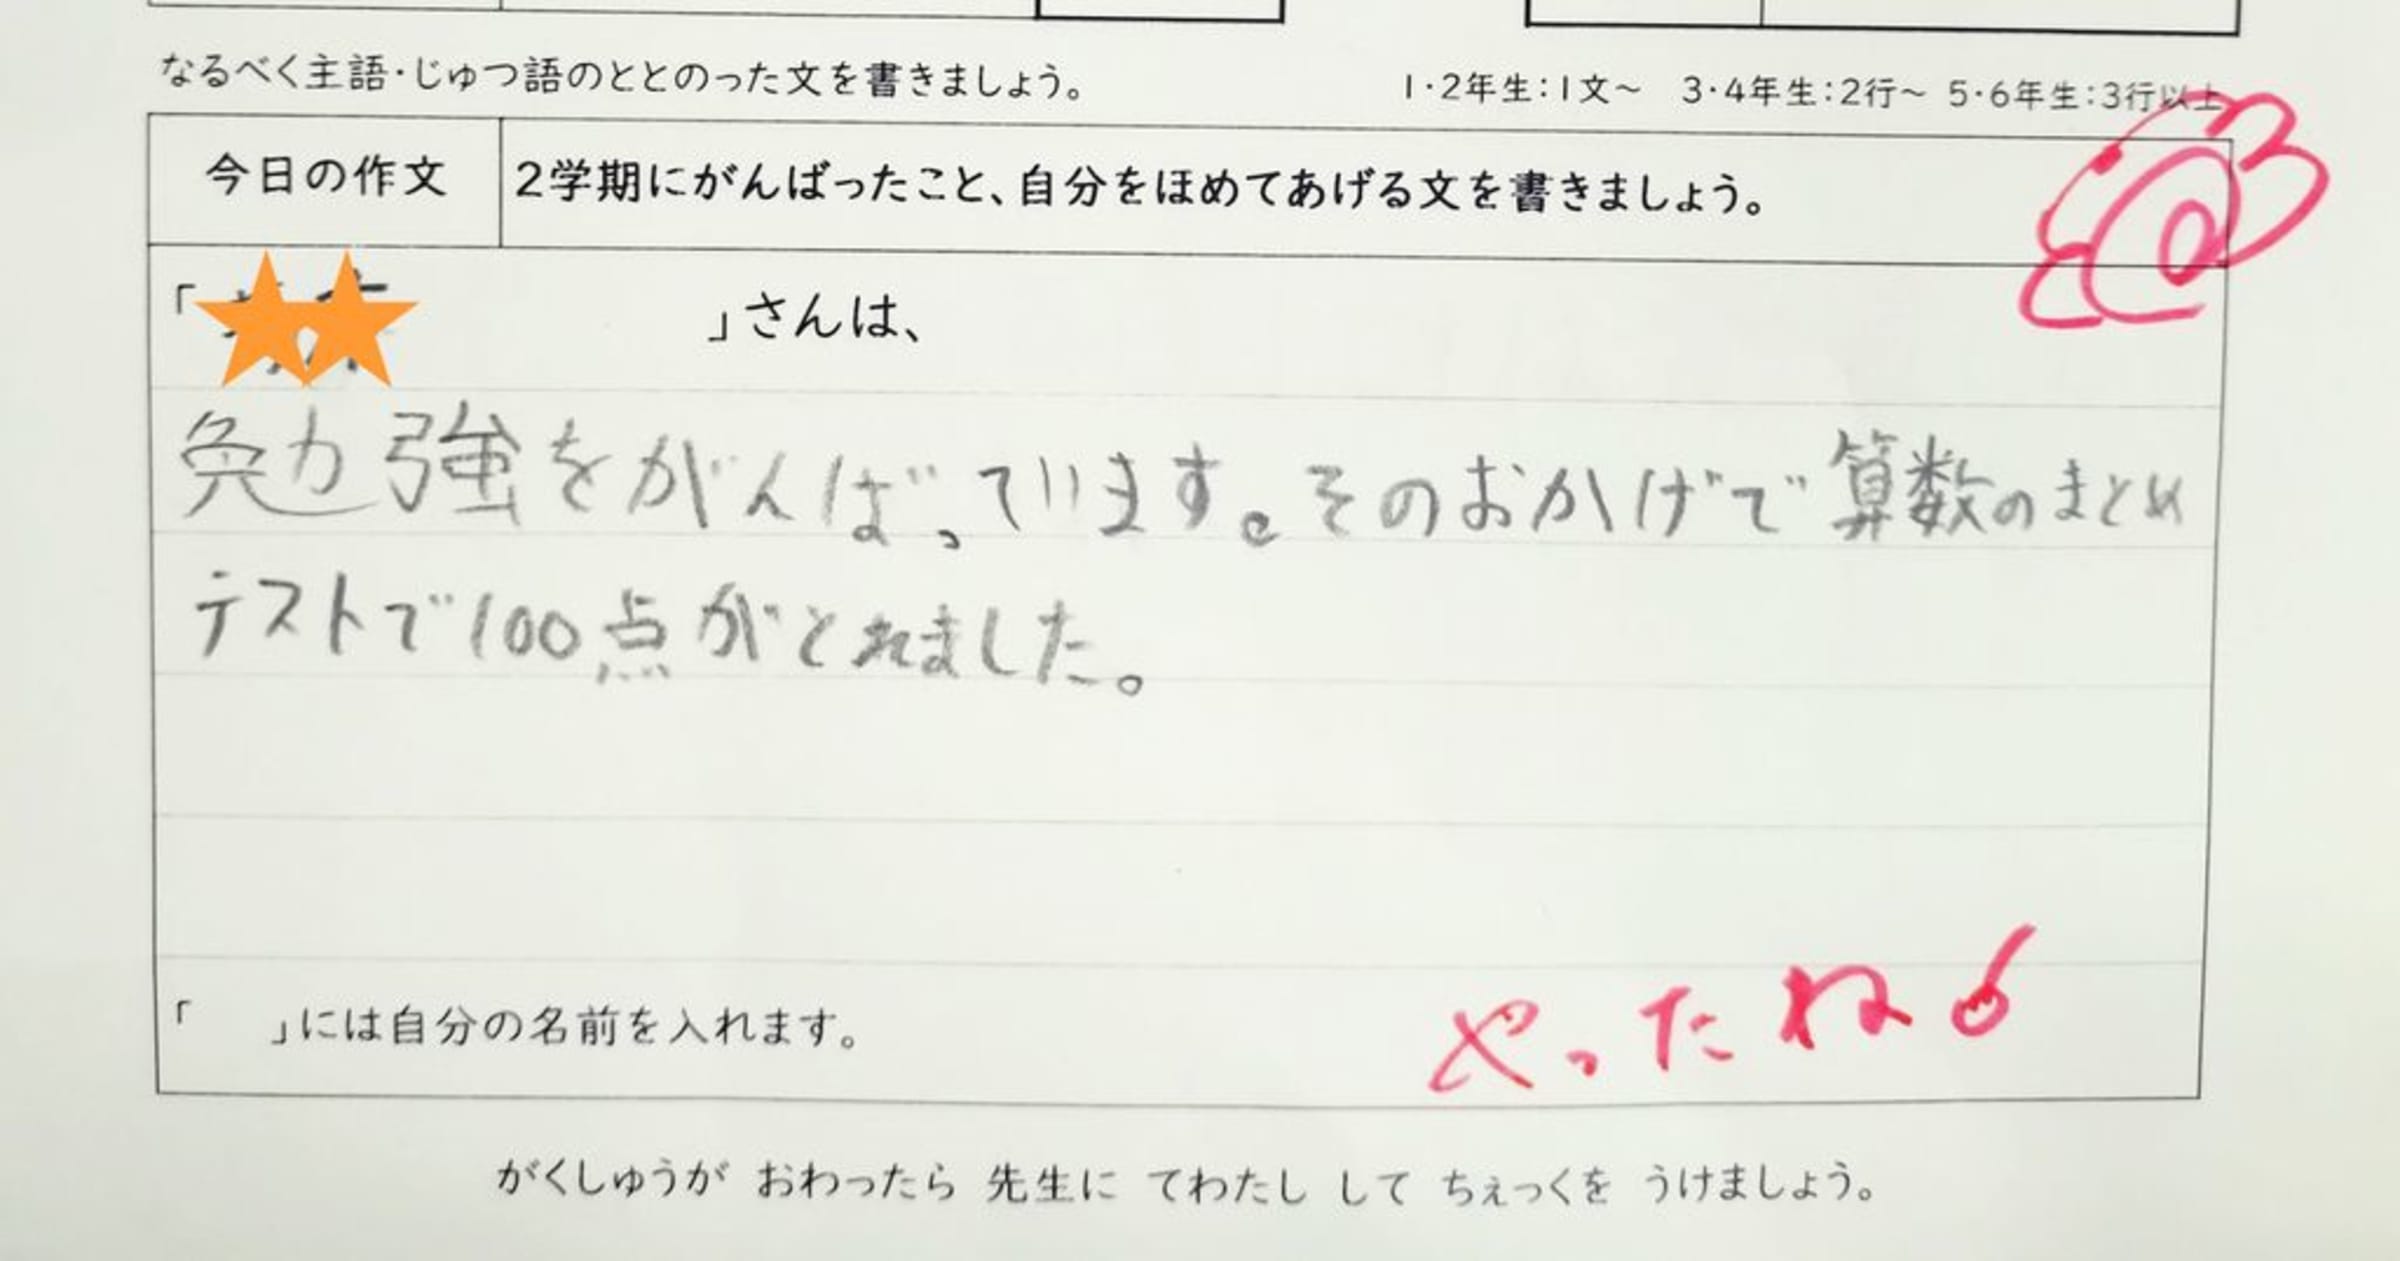 なるべく主語・じゅつ語のととのった文を書きましょう。
1・2年生：1文～ 3・4年生：2行～ 5・6年生：3行以上
今日の作文
2学期にがんばったこと、自分をほめてあげる文を書きましょう。
「 」さんは、
勉強をがんばっています。そのおかげで算数のまとめ
テストで100点がとれました。
「 」には自分の名前を入れます。
やったね!
がくしゅうが おわったら 先生に てわたし して ちぇっくを うけましょう。